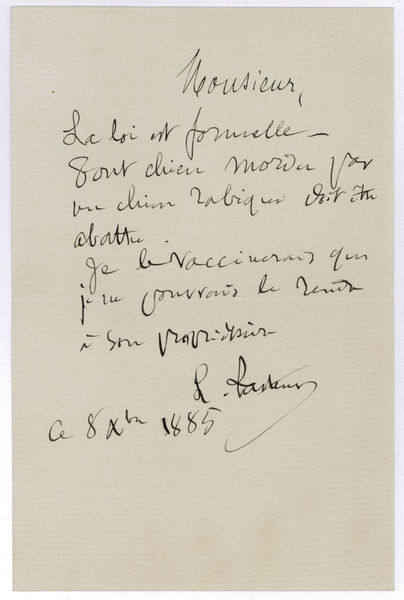 Monsieur,
La loi est formelle –
Tout chien mordu par
un chien rabique doit être
abattu.
Je le vaccinerais que
je ne pourrais le rendre
à son propriétaire
L. Pasteur
Ce 8 Xbre 1885